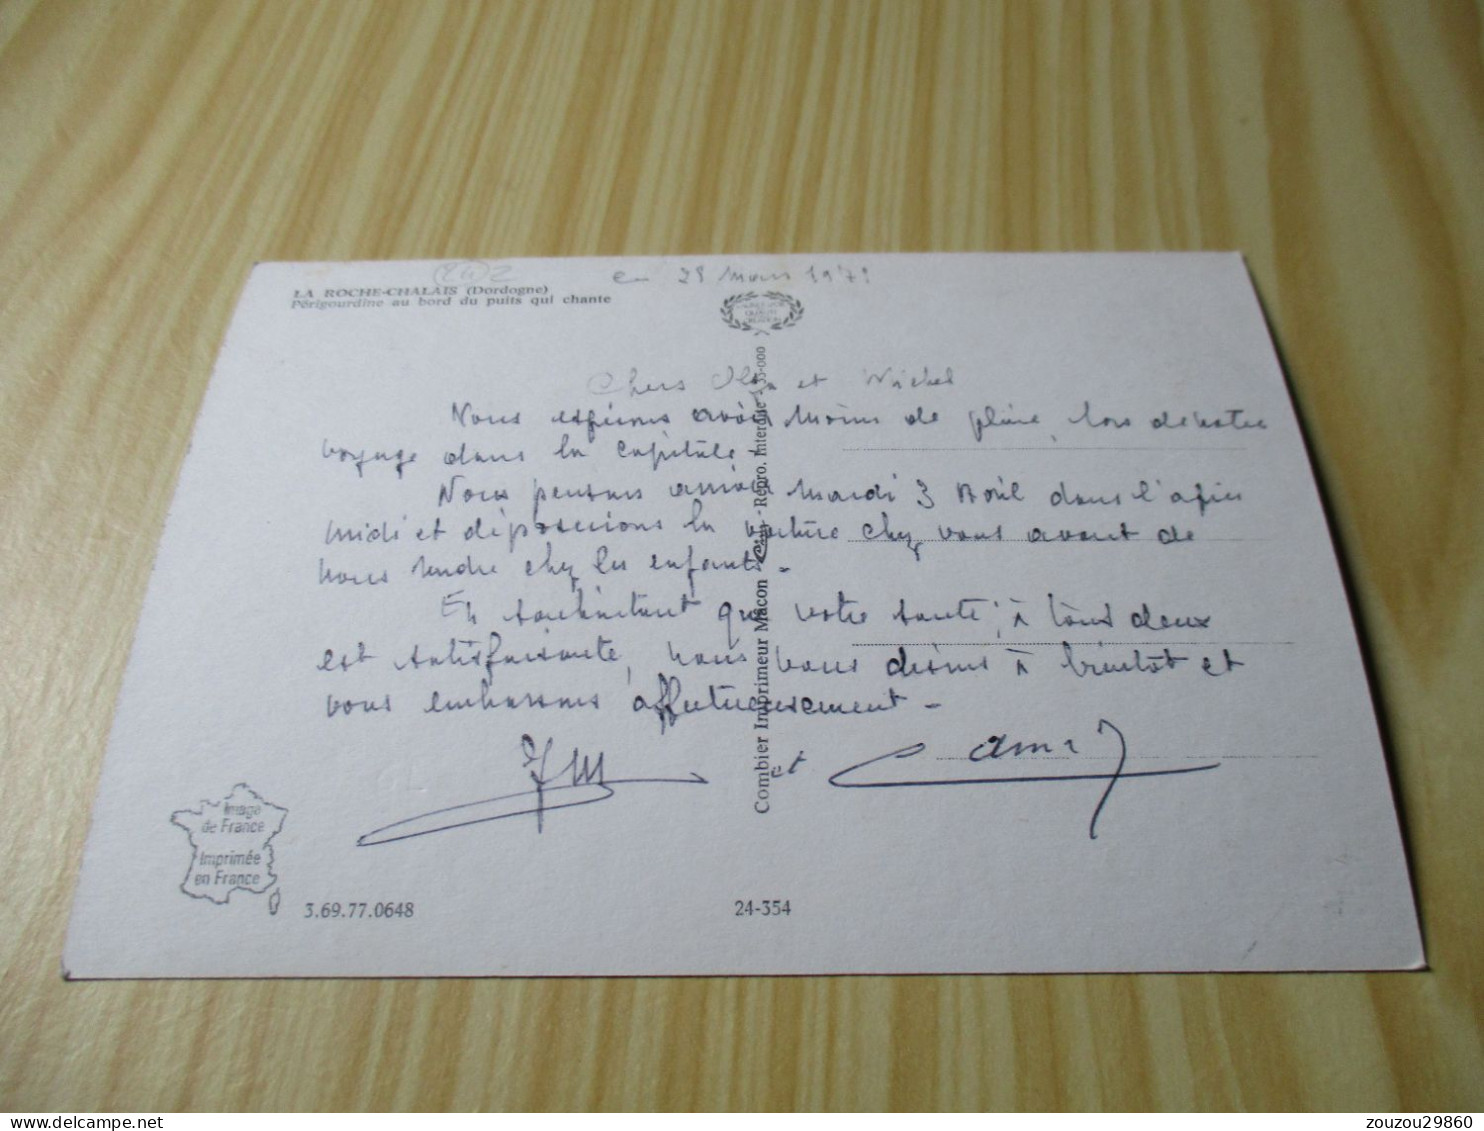 LA ROCHE-CHALAIS (Dordogne)
Périgourdine au bord du puits qui chante
28 Mars 197
Chers et Michel
Nous espérons avoir moins de pluie, lors de votre
voyage dans la capitale.
Nous pensons arriver Mardi 3 Avril dans l'après
midi et déposerions la voiture chez vous avant de
nous rendre chez les enfants.
En souhaitant que votre santé, à tous deux
est satisfaisante, nous vous disons à bientôt et
vous embrassons affectueusement.
et
Combier Imprimeur Macon
Repro. Interdite
Image
de France
Imprimée
en France
3.69.77.0648
24-354
zouzou29860